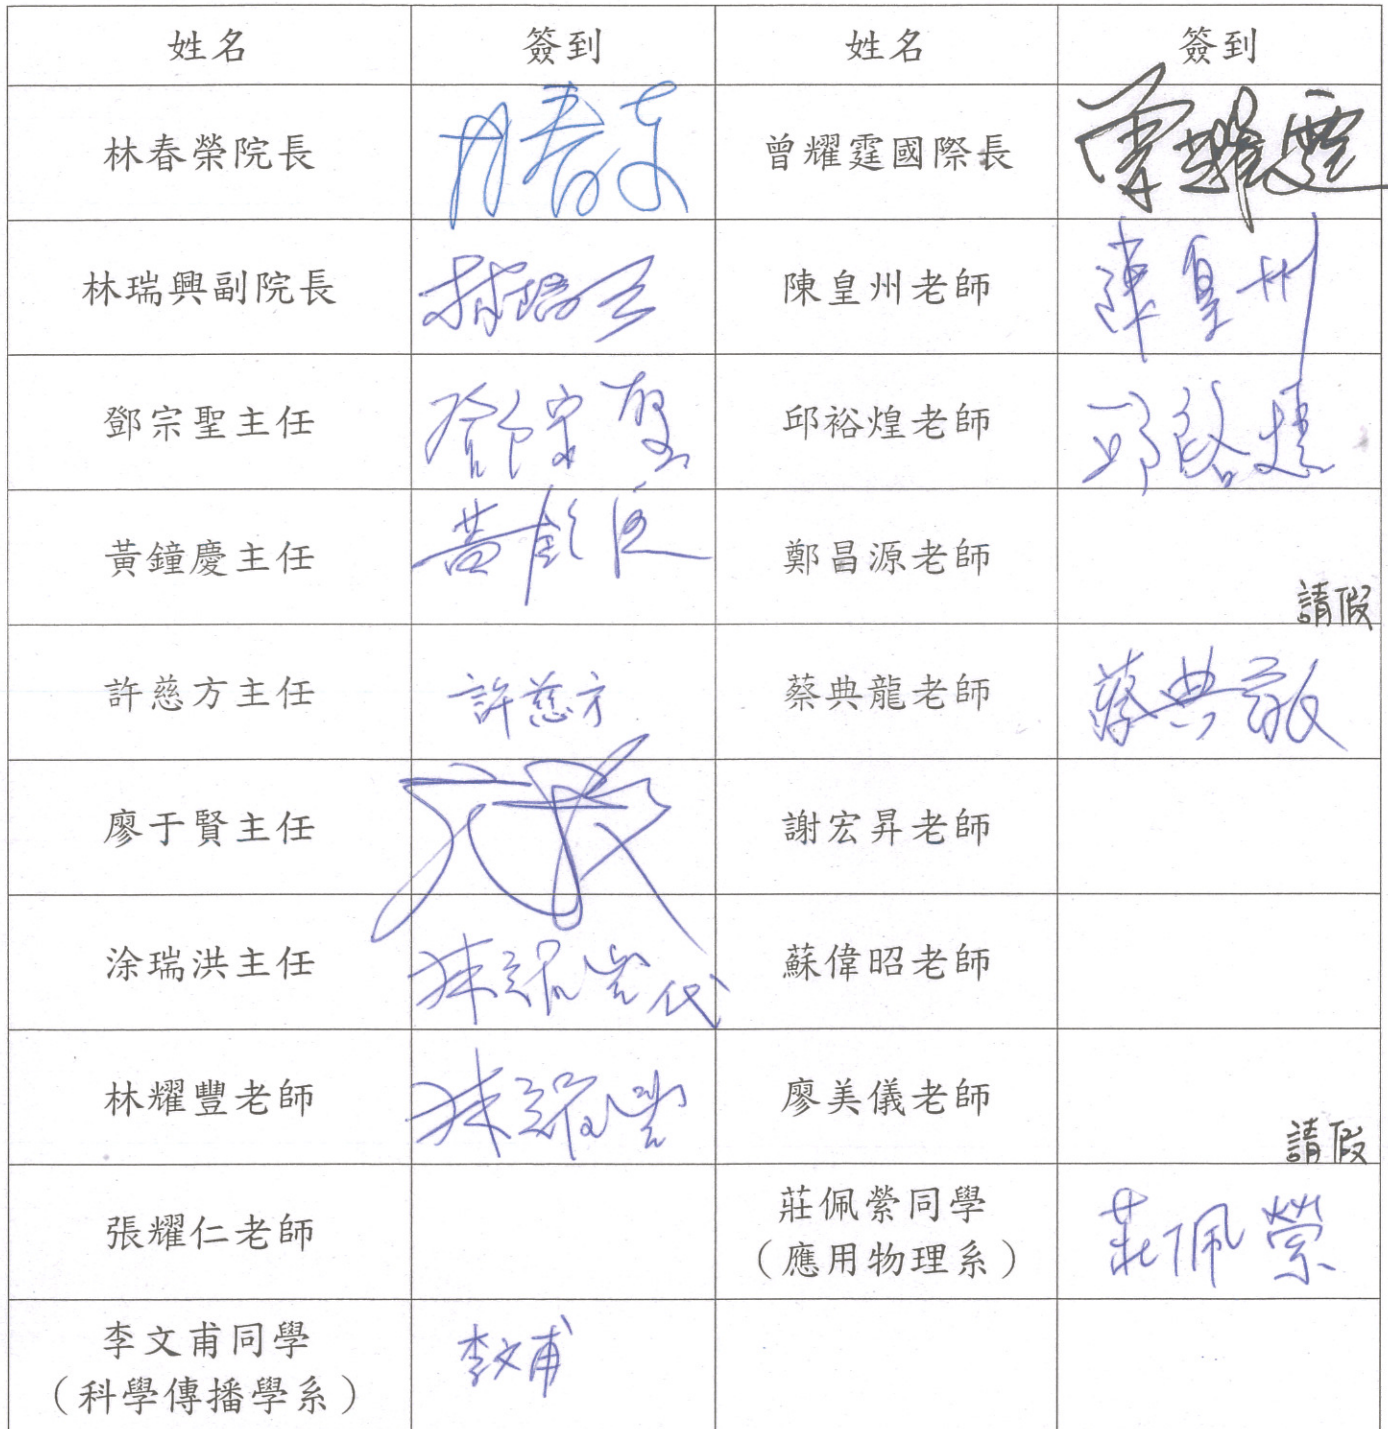 姓名 簽到 姓名 簽到
林春榮院長 林春榮 曾耀霆國際長 曾耀霆
林瑞興副院長 林瑞興 陳皇州老師 陳皇州
鄧宗聖主任 鄧宗聖 邱裕煌老師 邱裕煌
黃鐘慶主任 黃鐘慶 鄭昌源老師 請假
許慈方主任 許慈方 蔡典龍老師 蔡典龍
廖于賢主任 謝宏昇老師
涂瑞洪主任 林耀豐代 蘇偉昭老師
林耀豐老師 林耀豐 廖美儀老師 請假
張耀仁老師 莊佩縈同學
（應用物理系） 莊佩縈
李文甫同學 李文甫
（科學傳播學系）